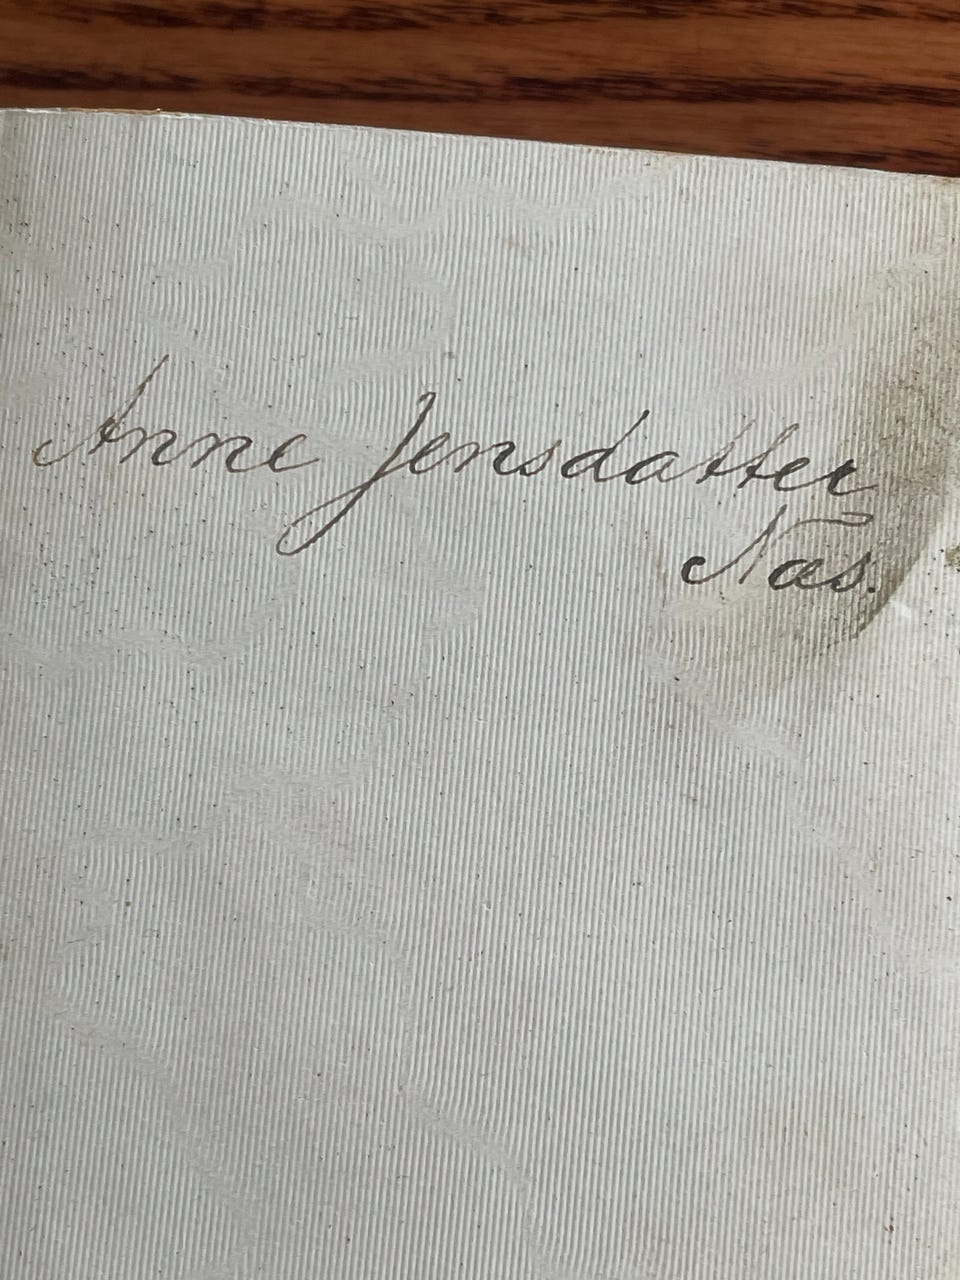 Anne Jensdatter
Næs.